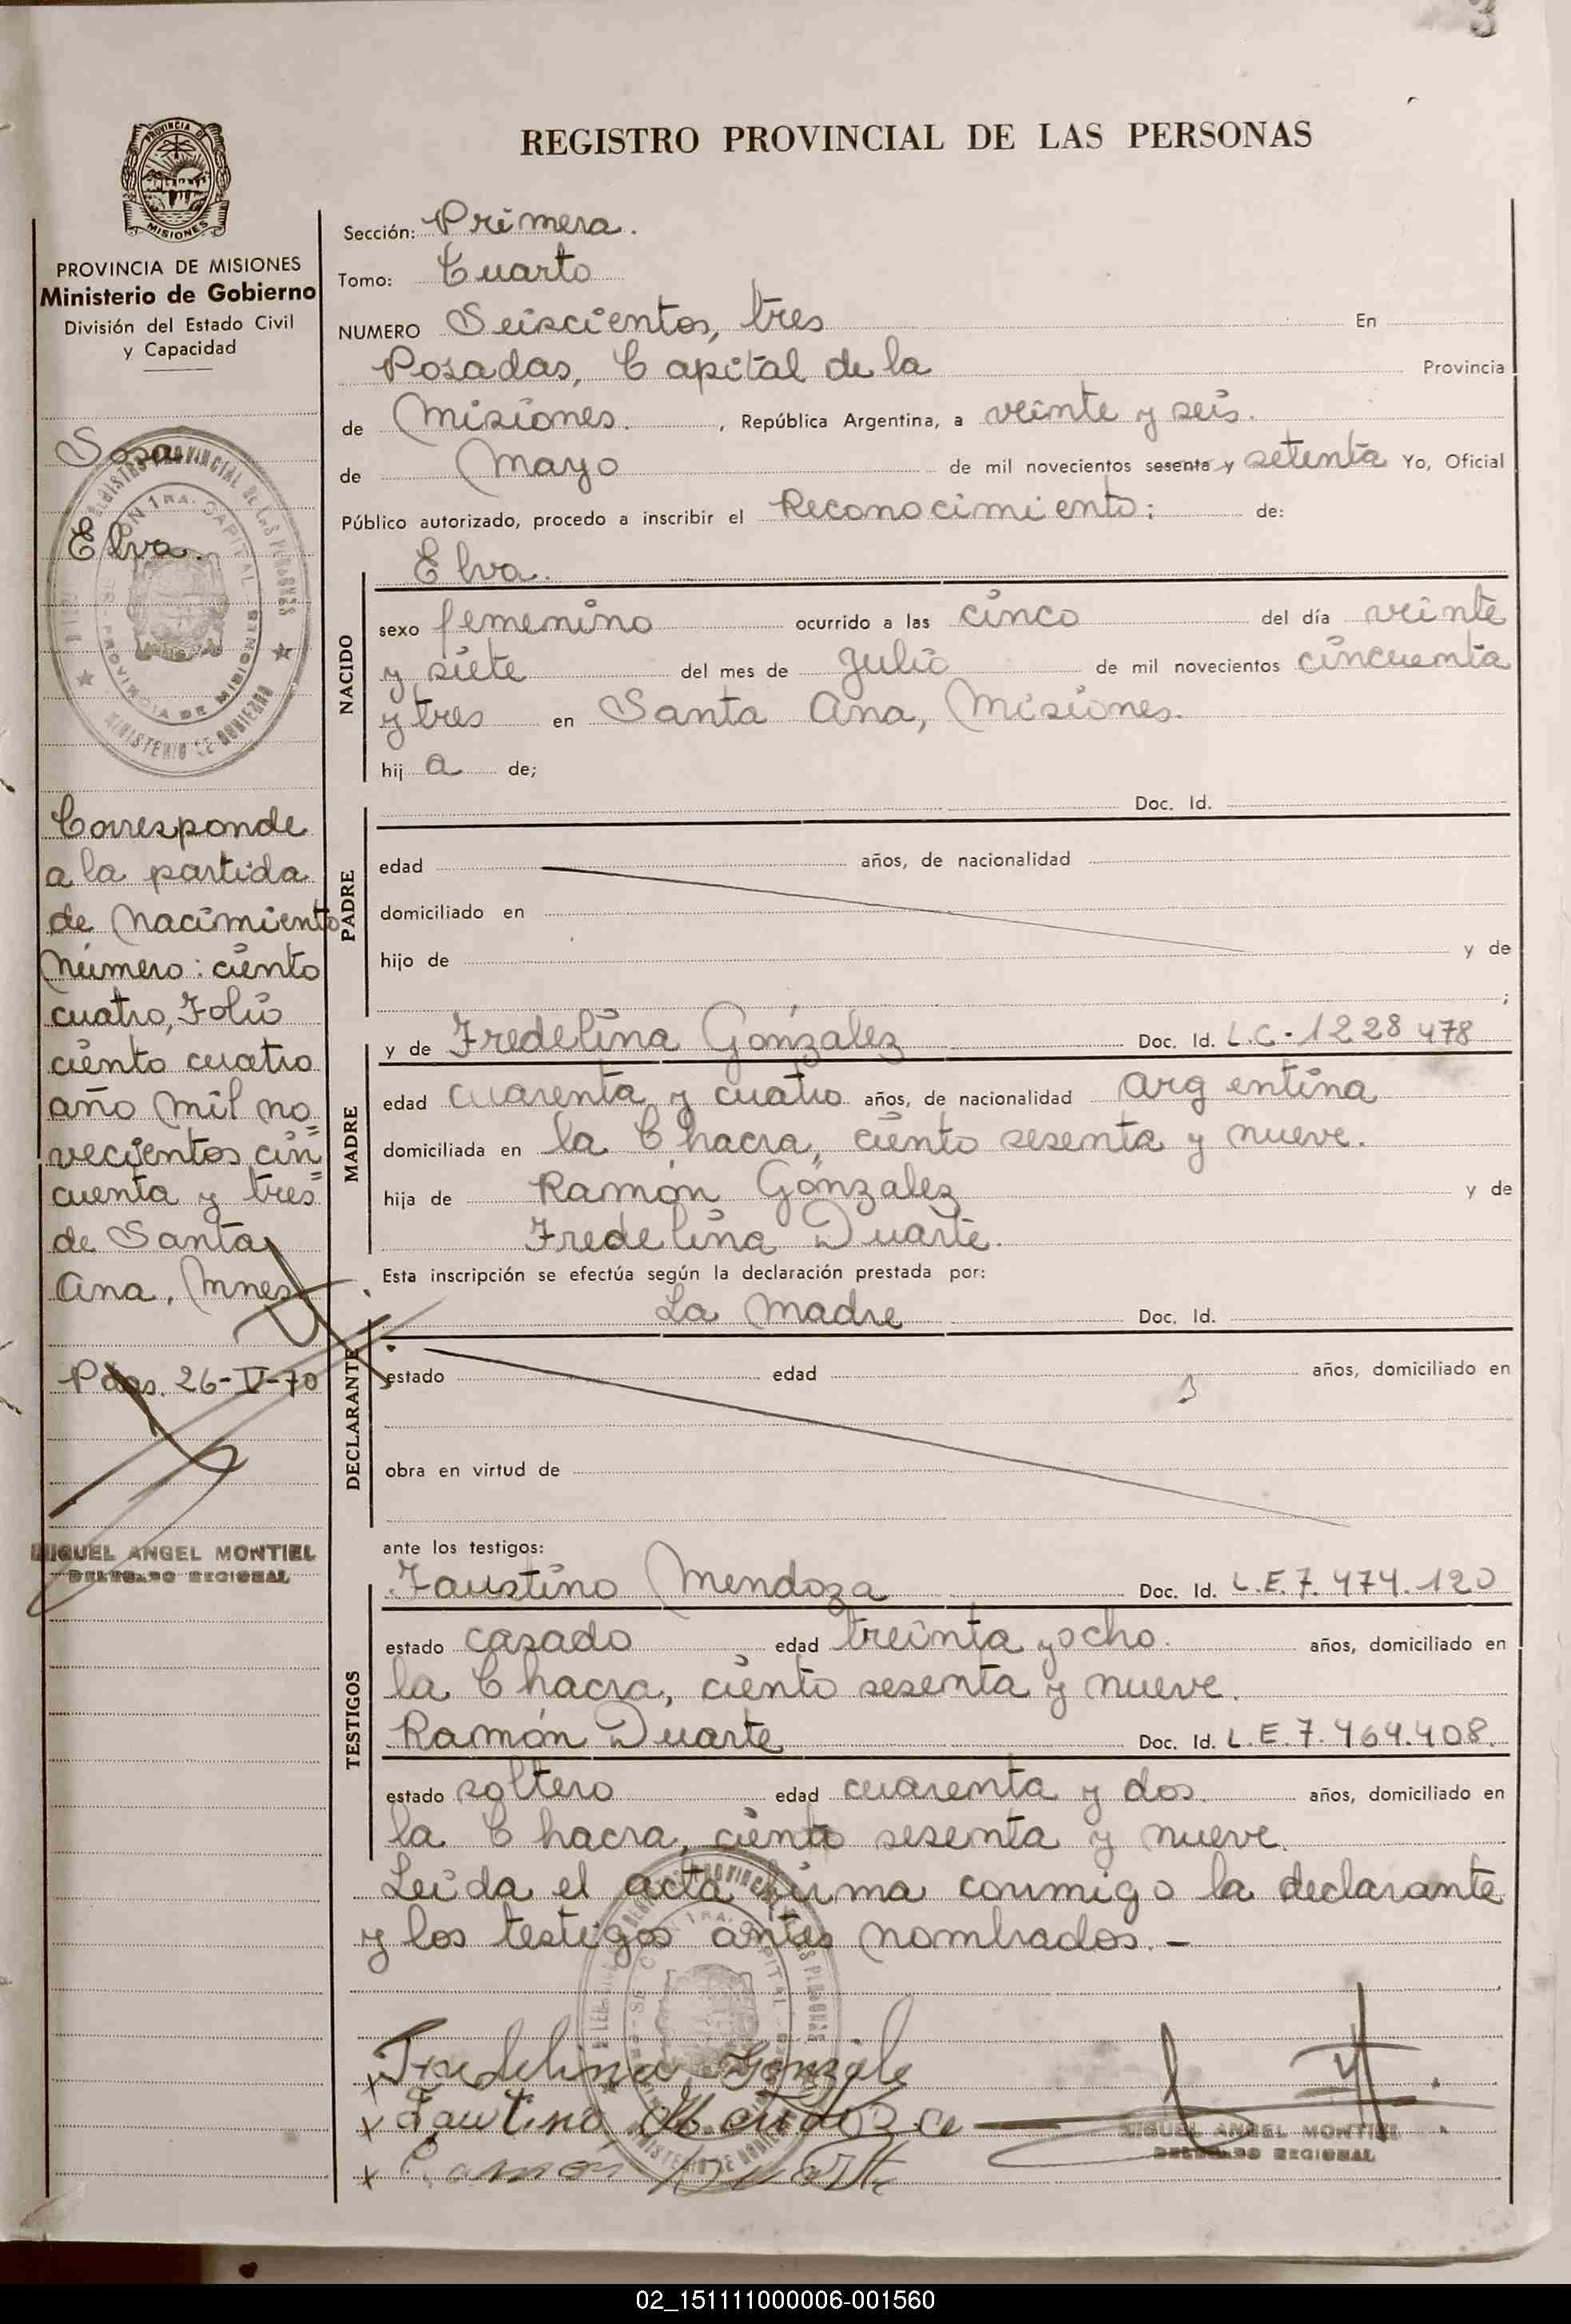 3
REGISTRO PROVINCIAL DE LAS PERSONAS
PROVINCIA DE
MISIONES
PROVINCIA DE MISIONES
Ministerio de Gobierno
División del Estado Civil
y Capacidad
Sosa
Elva.
REGISTRO PROVINCIAL DE LAS PERSONAS
MINISTERIO DE GOBIERNO
PROVINCIA DE MISIONES
Corresponde
a la partida
de Nacimiento
Número: ciento
cuatro, Folio
ciento cuatro
año mil no
vecientos cin=
cuenta y tres=
de Santa
Ana, Mnes
Pdas. 26-V-70
MIGUEL ANGEL MONTIEL
DELEGADO REGIONAL
Sección: Primera.
Tomo: Cuarto
NUMERO Seiscientos, tres En
Posadas, Capital de la Provincia
de Misiones. , República Argentina, a veinte y seis.
de Mayo de mil novecientos sesenta y setenta Yo, Oficial
Público autorizado, procedo a inscribir el Reconocimiento; de:
Elva.
NACIDO
sexo femenino ocurrido a las cinco del día veinte
y siete del mes de Julio de mil novecientos cincuenta
y tres en Santa Ana, Misiones.
hij a de;
Doc. Id.
PADRE
edad años, de nacionalidad
domiciliado en
hijo de y de
;
y de Fredelina González Doc. Id. L.C.-1228478
MADRE
edad cuarenta y cuatro años, de nacionalidad argentina
domiciliada en la Chacra, ciento sesenta y nueve.
hija de Ramón González y de
Fredelina Duarte.
Esta inscripción se efectúa según la declaración prestada por:
La Madre Doc. Id.
DECLARANTE
estado edad años, domiciliado en
obra en virtud de
ante los testigos:
Faustino Mendoza Doc. Id. L.E. 7.474.120
TESTIGOS
estado casado edad treinta y ocho. años, domiciliado en
la Chacra, ciento sesenta y nueve.
Ramón Duarte Doc. Id. L.E. 7.464.408.
estado soltero edad cuarenta y dos. años, domiciliado en
la Chacra, ciento sesenta y nueve.
Leida el acta firma conmigo la declarante
y los testigos antes nombrados.-
x Fredelina Gonzale
x Fautino Mendoza
x Ramón Duarte
MIGUEL ANGEL MONTIEL
DELEGADO REGIONAL
02_151111000006-001560